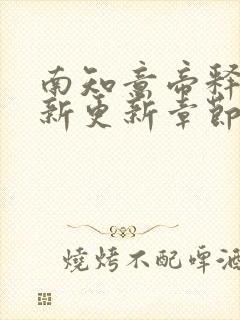 南知意帝释
新更新章節
燒烤不配啤酒